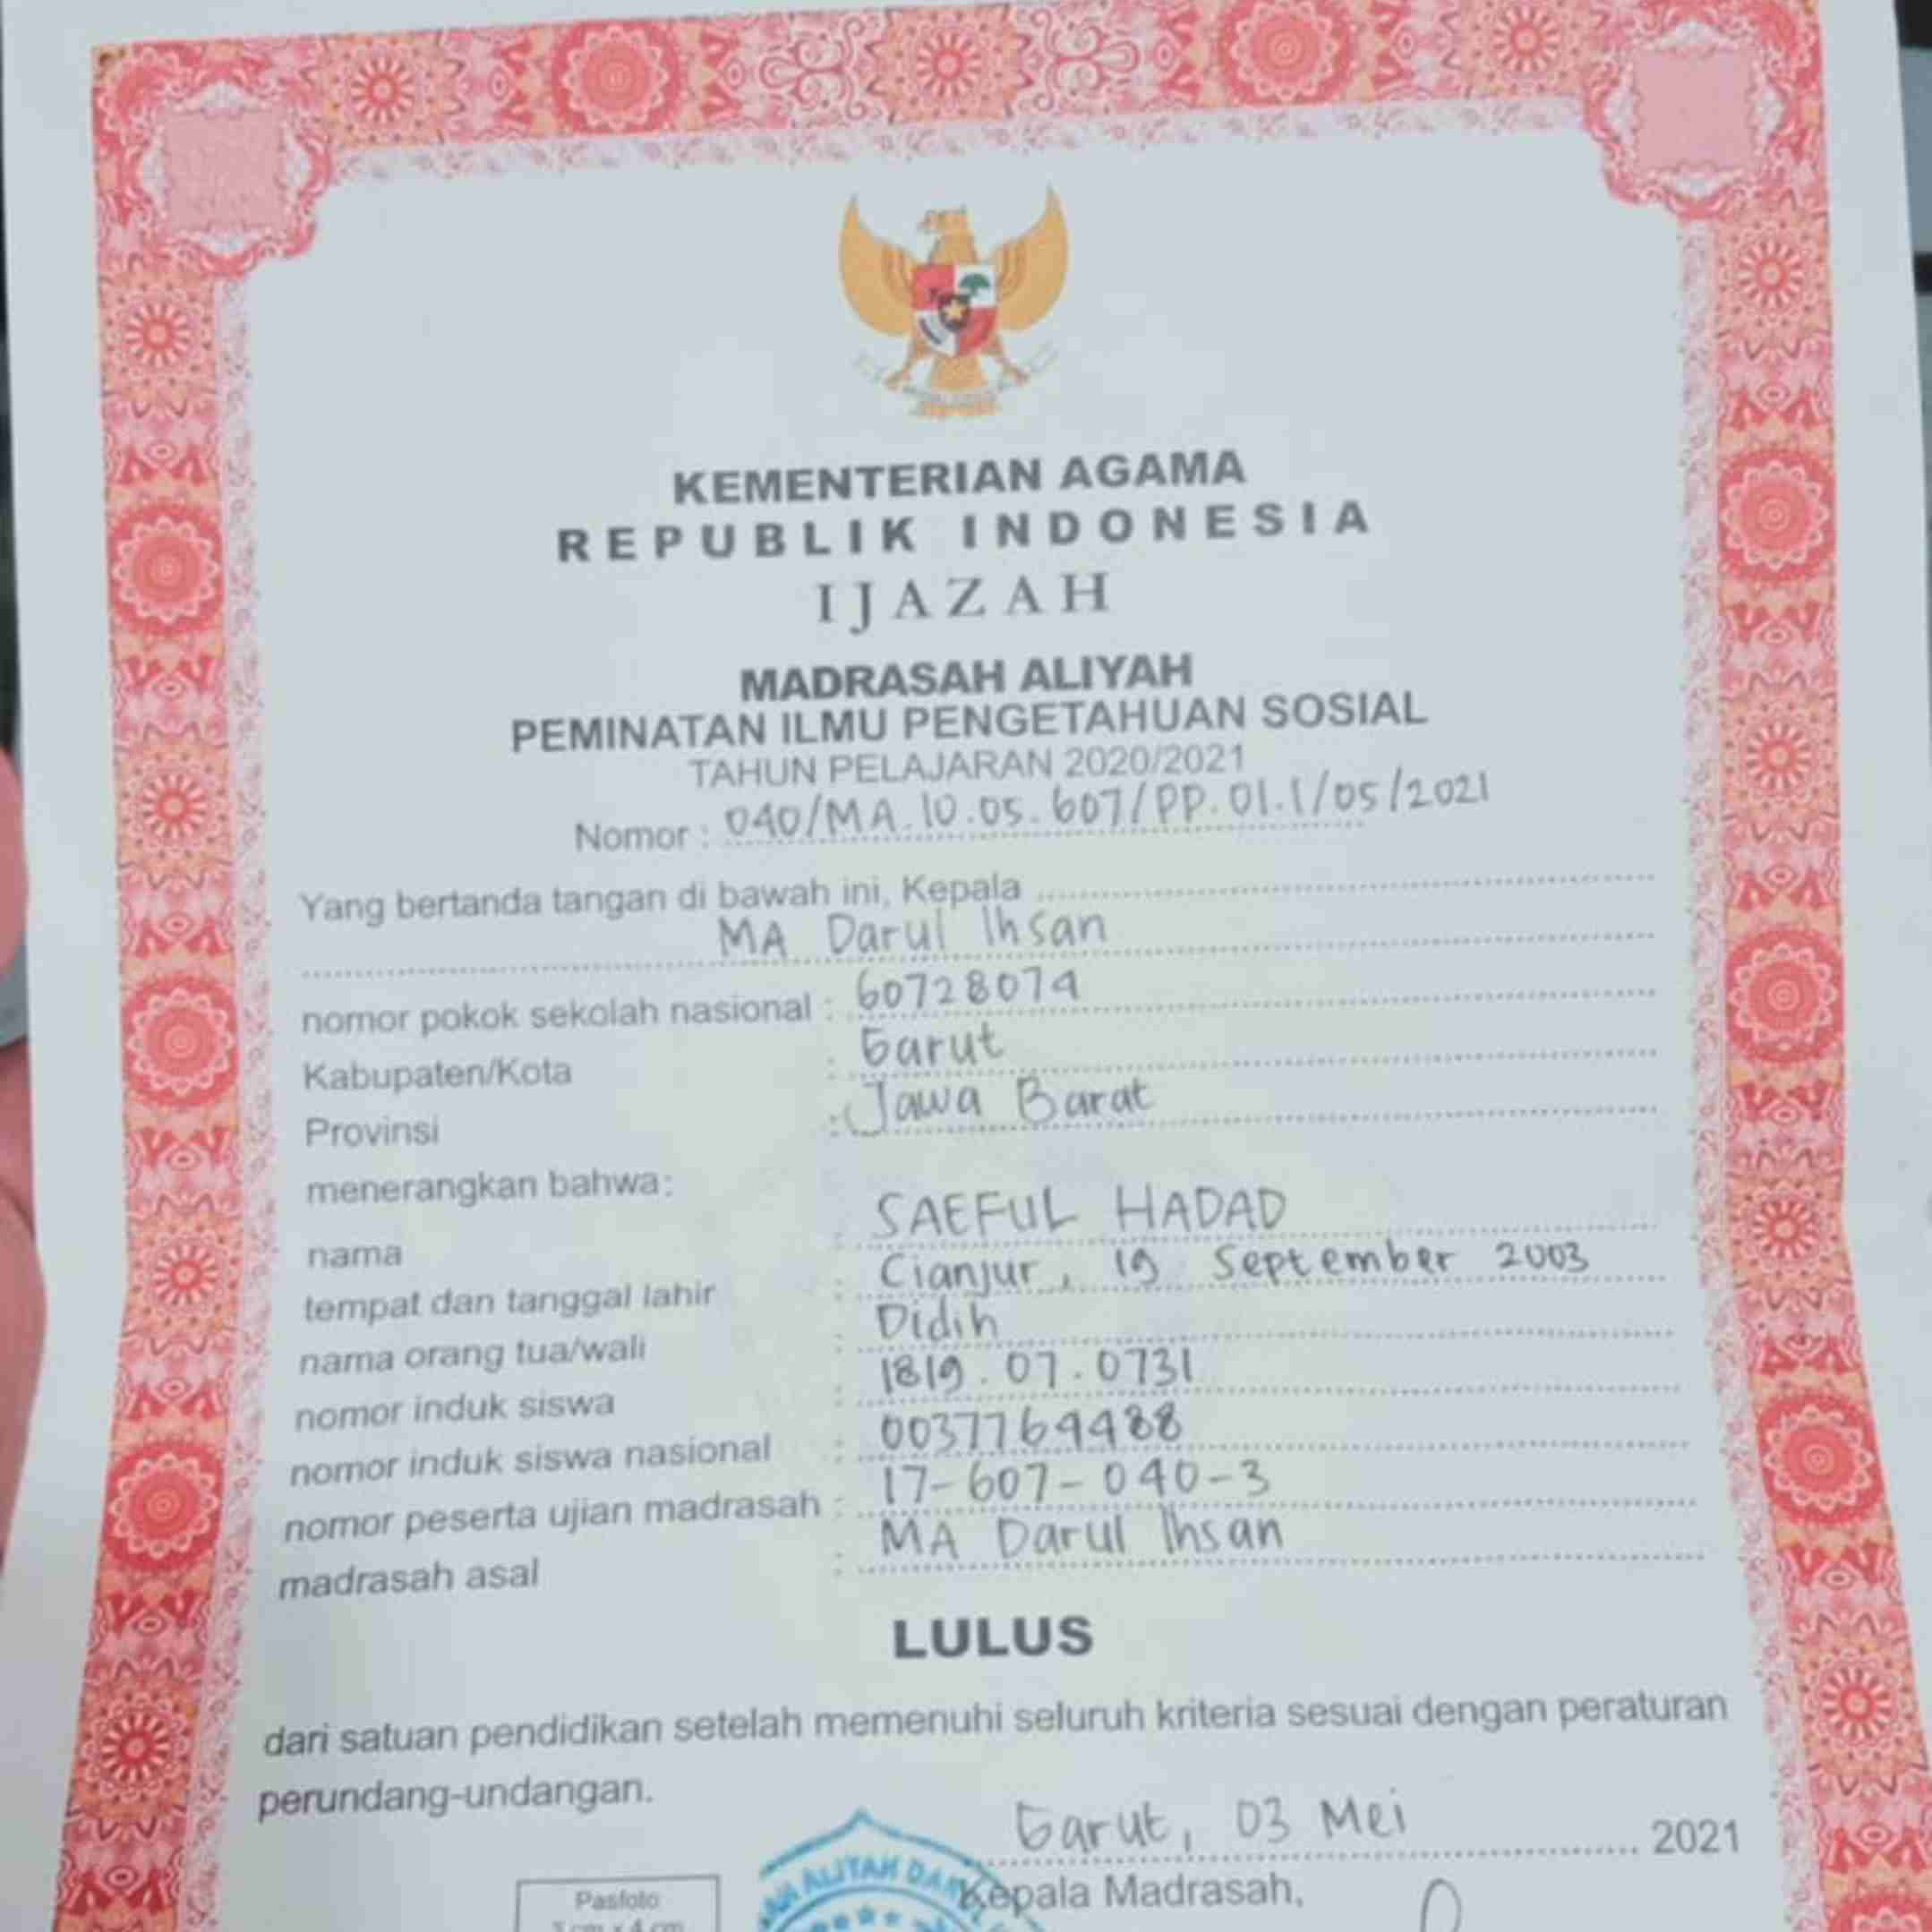 KEMENTERIAN AGAMA
REPUBLIK INDONESIA
IJAZAH
MADRASAH ALIYAH
PEMINATAN ILMU PENGETAHUAN SOSIAL
TAHUN PELAJARAN 2020/2021
Nomor : 040/MA.10.05.607/PP.01.1/05/2021
Yang bertanda tangan di bawah ini, Kepala
MA Darul Ihsan
nomor pokok sekolah nasional : 60728074
Kabupaten/Kota : Garut
Provinsi : Jawa Barat
menerangkan bahwa:
nama : SAEFUL HADAD
tempat dan tanggal lahir : Cianjur, 19 September 2003
nama orang tua/wali : Didih
nomor induk siswa : 1819.07.0731
nomor induk siswa nasional : 0037769488
nomor peserta ujian madrasah : 17-607-040-3
madrasah asal : MA Darul Ihsan
LULUS
dari satuan pendidikan setelah memenuhi seluruh kriteria sesuai dengan peraturan
perundang-undangan.
Garut, 03 Mei 2021
Kepala Madrasah,
Pasfoto
3 cm x 4 cm